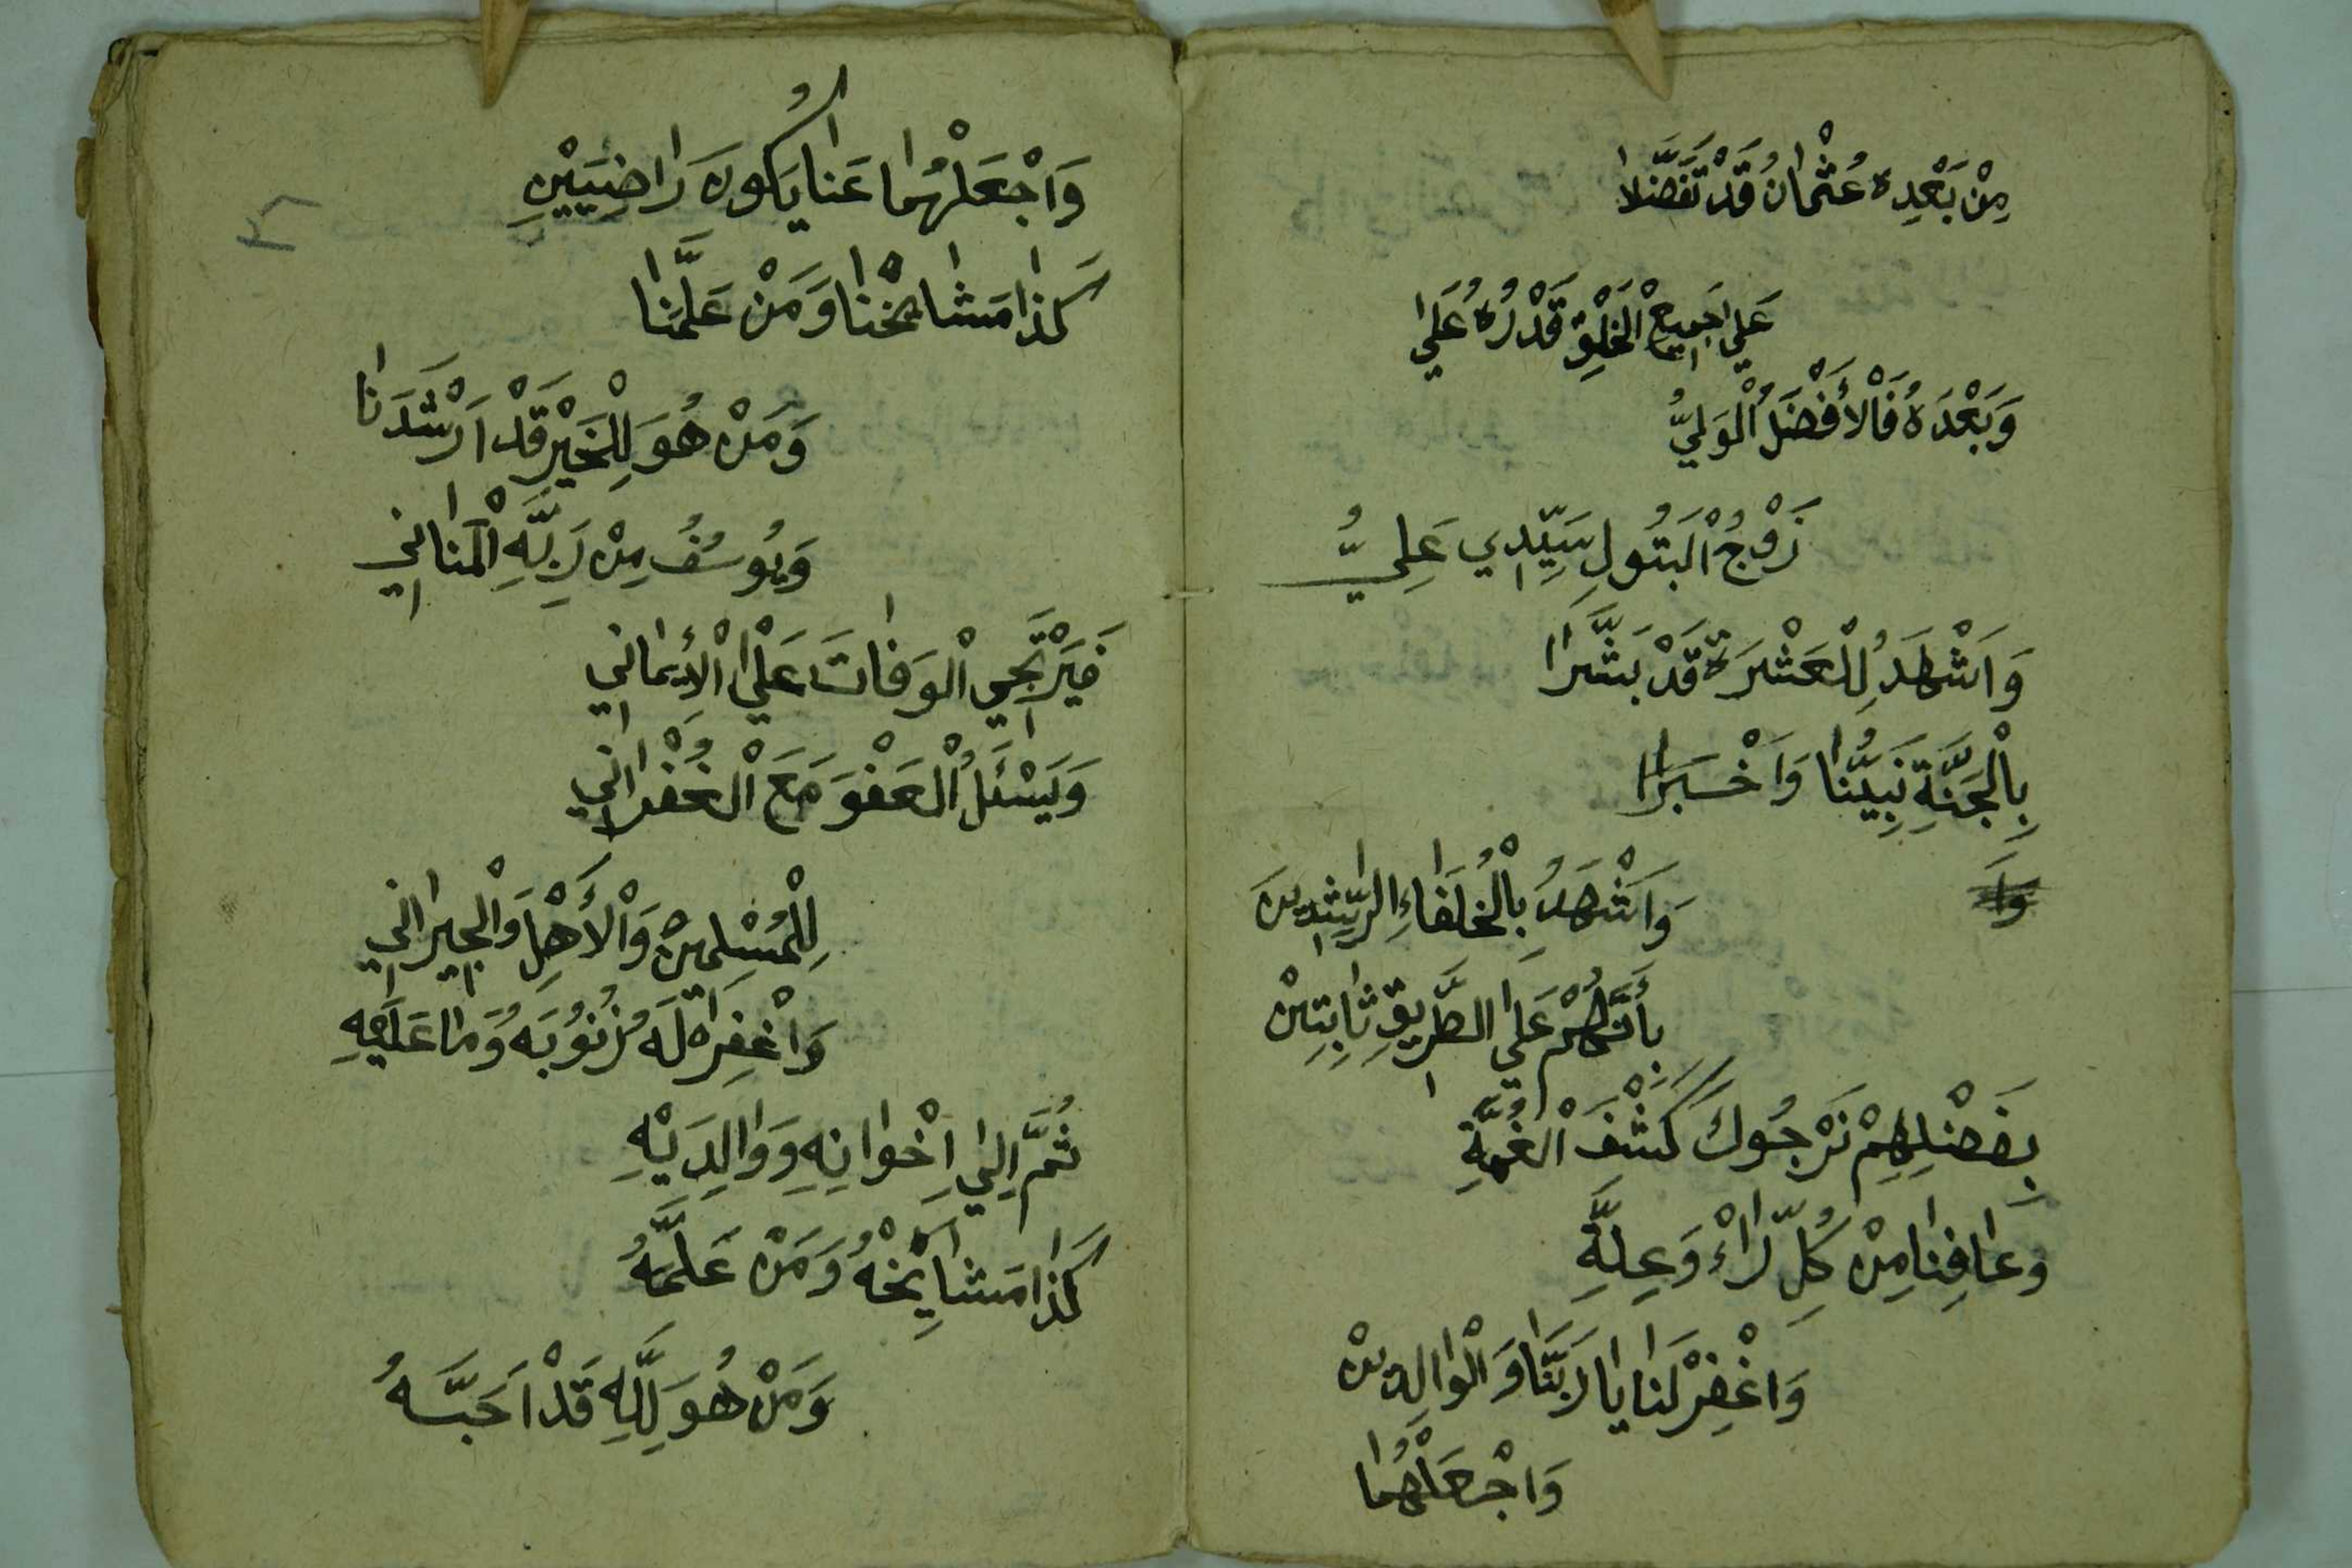 مِنْ بَعْدِهِ عُثْمَانُ قَدْ تَفَضَّلَا
عَلَي جَمِيعِ الْخَلْقِ قَدْرُهُ عَلَي
وَبَعْدَهُ فَالْأَفْضَلُ الْوَلِيُّ
زَوْجُ الْبَتُولِ سَيِّدِي عَلِيُّ
وَاَشْهَدُ لِلْعَشْرَةِ قَدْ بَشَّرَا
بِالْجَنَّةِ نَبِيُّنَا وَاَخْبَرَا
وَاَ
وَاَشْهَدُ بِالْخُلَفَاءِ الرّشِدِينَ
بِأَنَّهُمْ عَلَي الطَّرِيقِ ثَابِتِينْ
بِفَضْلِهِمْ نَرْجُوكَ كَشْفَ الْغُمَّةِ
وَعَافِنَا مِنْ كُلِّ دَاءْ وَعِلَّةِ
وَاغْفِرْ لَنَا يَا رَبَّنَا وَالْوَالِدِينْ
وَاجْعَلْهُمَا
وَاجْعَلْهُمَا عَنَا يَكُونَ رَاضِيَيْنِ
كَذَا مَشَايخْنَا وَمَنْ عَلَّمَنَا
وَمَنْ هُوَ لِلْخَيْرِ قَدْ اَرْشَدَنَا
وَيُوسُفُ مِنْ رَبِّهِ الْمَنَانِي
فَيَرْتَجِي الْوَفَاتَ عَلَي الْأِيمَانِي
وَيَسْئَلُ الْعَفْوَ مَعَ الْغُفْرَانِي
لِلْمُسْلِمِينْ وَالْأَهْلِ وَالْجِيرَانِي
وَاغْفِرْ لَهُ ذُنُوبَهُ وَمَا عَلَيْهِ
ثُمَّ اِلَي اِخْوَانِهِ وَوَالِدَيْهِ
كَذَا مَشَايِخْهُ وَمَنْ عَلَّمَهُ
وَمَنْ هُوَ لِلَّهِ قَدْ اَحَبَّهُ